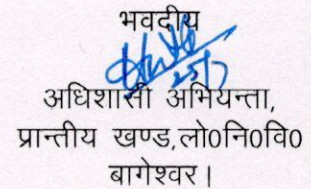 भवदीय
25/7
अधिशासी अभियन्ता,
प्रान्तीय खण्ड,लो0नि0वि0
बागेश्वर।